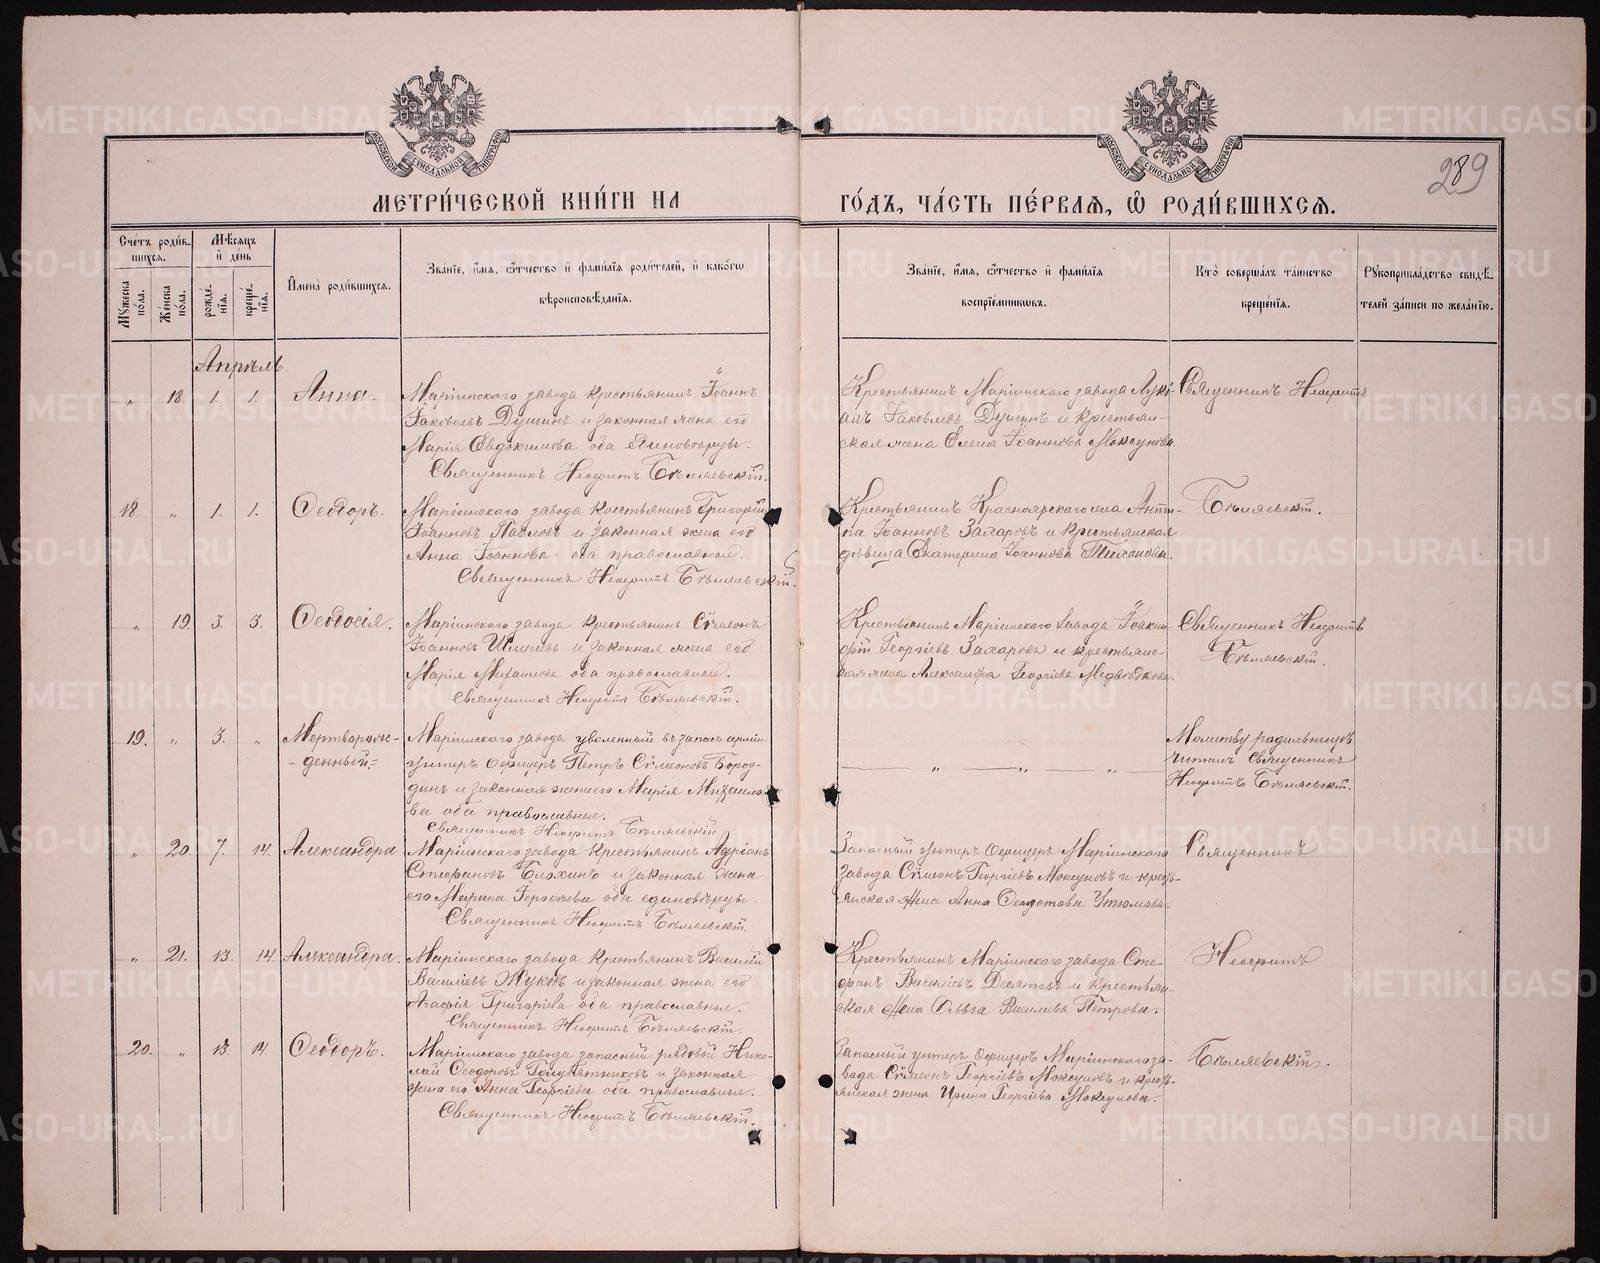 289
МЕТРИ́ЧЕСКОЙ КНИ́ГИ НА ГО́ДЪ, ЧА́СТЬ ПЕ́РВАѦ, Ѽ РОДИ́ВШИХСѦ.
Сче́тъ роди́в-
шихся.
Мѣ́сяцъ
и҆ де́нь
Му́жеска по́ла.
Же́нска по́ла.
рожде́нїя.
креще́нїя.
И҆мена̀ роди́вшихся.
Зва́нїе, и҆́мя, ѻ҆́тчество и҆ фами́лїя роди́телей, и҆ како́гѡ
вѣроисповѣ́данїя.
Зва́нїе, и҆́мя, ѻ҆́тчество и҆ фами́лїя
воспрїе́мниковъ.
Кто̀ соверша́лъ та́инство
креще́нїя.
Рукоприкла́дство свидѣ́-
телей за́писи по жела́нїю.
Апрѣль.
„ 18. 1. 1. Анна.
Маріинскаго завода крестьянинъ Іоаннъ
Іаковлевъ Душинъ и законная жена его
Марія Евдокимова оба единовѣрцы.
Священникъ Неофитъ Бѣляевскій.
Крестьянинъ Маріинскаго завода
Іаковлевъ Душинъ и крестьян-
ская жена Елена Іоаннова Моксунова.
Священникъ Неофитъ
18. „ 1. 1. Ѳеодоръ.
Маріинскаго завода крестьянинъ Григорій
Іоанновъ Павловъ и законная жена его
Анна Іоаннова оба православные.
Священникъ Неофитъ Бѣляевскій.
Крестьянинъ Красноярскаго села Анти-
па Іоанновъ Захаровъ и крестьянская
дѣвица Екатерина Іоаннова Тихонова.
Бѣляевскій.
„ 19. 3. 3. Ѳеодосія.
Маріинскаго завода крестьянинъ Сѵмеонъ
Іоанновъ и законная жена его
Марія Михаилова оба православные.
Священникъ Неофитъ Бѣляевскій.
Крестьянинъ Маріинскаго завода
Георгіевъ Захаровъ и крестьянс-
кая жена Александра Георгіева Медвѣдкова.
Священникъ Неофитъ
Бѣляевскій.
19. „ 3. „ Мертворож-
-денный.=
Маріинскаго завода уволенный въ запасъ арміи
унтеръ офицеръ Петръ Сѵмеоновъ Бород-
динъ и законная жена его Марія Михаило-
ва оба православные.
Священникъ Неофитъ Бѣляевскій
„ „ „
Молитву родильницѣ
читалъ Священникъ
Неофитъ Бѣляевскій.
„ 20 7. 14. Александра
Маріинскаго завода крестьянинъ Адріанъ
Стефановъ Блохинъ и законная жена
его Марина оба единовѣрцы.
Священникъ Неофитъ Бѣляевскій.
Запасный унтеръ Офицеръ Маріинскаго
завода Сѵмеонъ Георгіевъ Моксуновъ и кресть-
янская жена Анна Ѳеодотова Утюмова.
Священникъ
„ 21. 13. 14. Александра.
Маріинскаго завода крестьянинъ Василій
Василіевъ Жуковъ и законная жена его
Агафія Григоріева оба православные.
Священникъ Неофитъ Бѣляевскій.
Крестьянинъ Маріинскаго завода Сте-
фанъ Василіевъ Десятовъ и крестьян-
ская жена Ольга Василіева Петрова.
Неофитъ
20. „ 13 14. Ѳеодоръ.
Маріинскаго завода запасный рядовой Нико-
лай Ѳеодоровъ Голубятниковъ и законная
жена его Анна Георгіева оба православные.
Священникъ Неофитъ Бѣляевскій.
Запасный унтеръ Офицеръ Маріинскаго за-
вода Сѵмеонъ Георгіевъ Моксуновъ и кресть-
янская жена Ирина Георгіева Моксунова.
Бѣляевскій.
METRIKI.GASO-URAL.RU